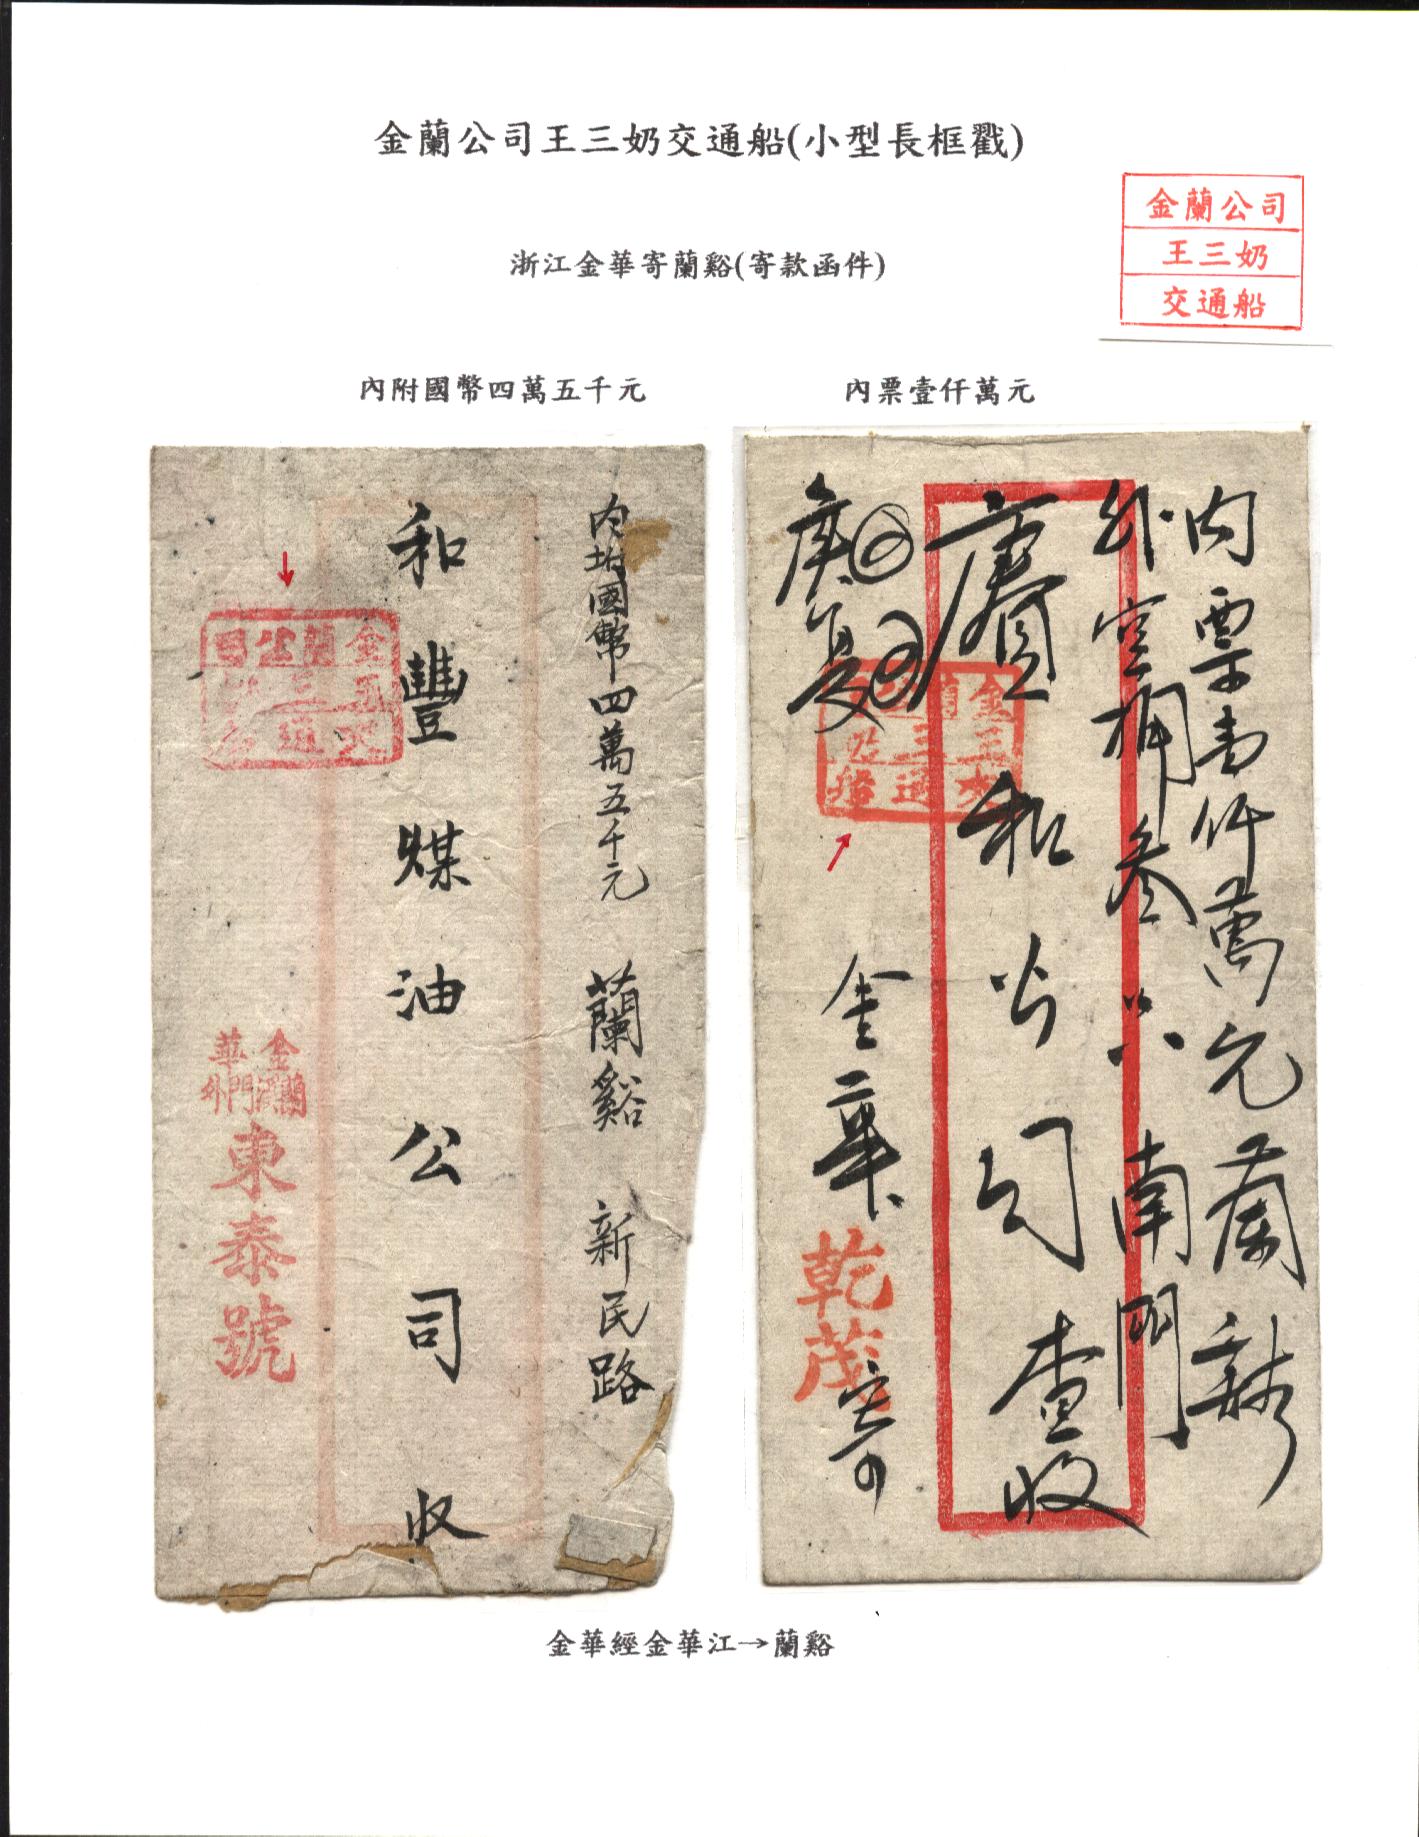 金蘭公司王三奶交通船(小型長框戳)
浙江金華寄蘭谿(寄款函件)
金蘭公司
王三奶
交通船
內附國幣四萬五千元
內票壹仟萬元
内坿國幣四萬五千元 蘭谿 新民路
和豐煤油公司 收
金蘭公司
王三奶
交通船
金華
蘭溪門外
東泰號
内票壹仟萬元 蘭谿
外空桶叁只 南門
和公司查收
金華 乾茂 寄
金蘭公司
王三奶
交通船
金華經金華江→蘭谿